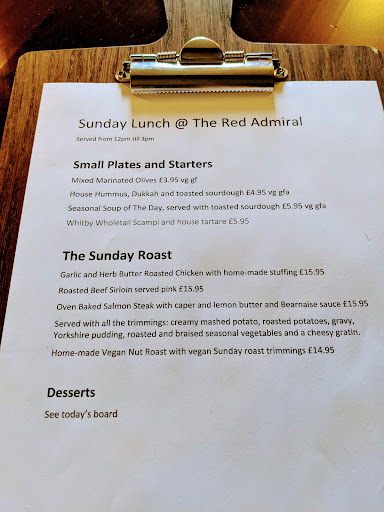 Sunday Lunch @ The Red Admiral
Served from 12pm till 3pm
Small Plates and Starters
Mixed Marinated Olives £3.95 vg gf
House Hummus, Dukkah and toasted sourdough £4.95 vg gfa
Seasonal Soup of The Day, served with toasted sourdough £5.95 vg gfa
Whitby Wholetail Scampi and house tartare £5.95
The Sunday Roast
Garlic and Herb Butter Roasted Chicken with home-made stuffing £15.95
Roasted Beef Sirloin served pink £15.95
Oven Baked Salmon Steak with caper and lemon butter and Bearnaise sauce £15.95
Served with all the trimmings: creamy mashed potato, roasted potatoes, gravy,
Yorkshire pudding, roasted and braised seasonal vegetables and a cheesy gratin.
Home-made Vegan Nut Roast with vegan Sunday roast trimmings £14.95
Desserts
See today's board